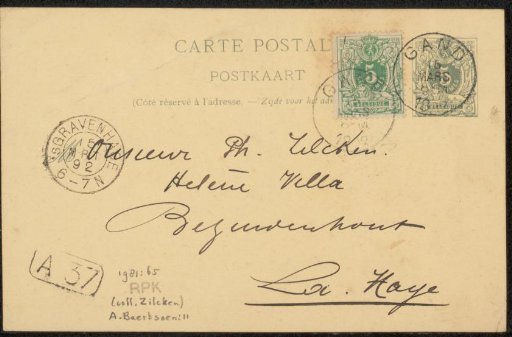 CARTE POSTAL
POSTKAART
(Côté réservé à l'adresse. — Zijde voor het
5
GAND
MARS
5
'SGRAVENHAGE
92
6-7N
Monsieur Ph. Zilcken.
Helene Villa
Bezuidenhout
La Haye
A 37
1981:65
RPK
(coll. Zilcken)
A. Baertsoen:11